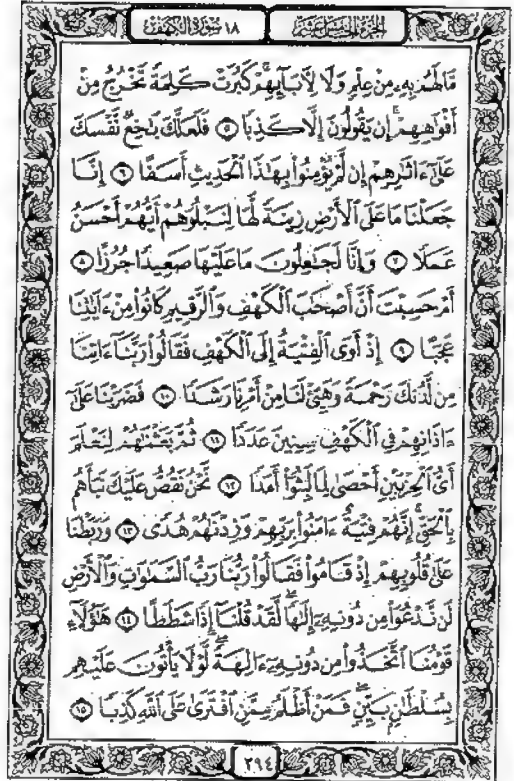 الجزء الخامس عشر
١٨ سورة الكهف
مَّا لَهُم بِهِۦ مِنْ عِلْمٍ وَلَا لِأَبَآئِهِمْ ۚ كَبُرَتْ كَلِمَةً تَخْرُجُ مِنْ
أَفْوَٰهِهِمْ ۚ إِن يَقُولُونَ إِلَّا كَذِبًا ۝٥ فَلَعَلَّكَ بَٰخِعٌ نَّفْسَكَ
عَلَىٰٓ ءَاثَٰرِهِمْ إِن لَّمْ يُؤْمِنُوا۟ بِهَٰذَا ٱلْحَدِيثِ أَسَفًا ۝٦ إِنَّا
جَعَلْنَا مَا عَلَى ٱلْأَرْضِ زِينَةً لَّهَا لِنَبْلُوَهُمْ أَيُّهُمْ أَحْسَنُ
عَمَلًا ۝٧ وَإِنَّا لَجَٰعِلُونَ مَا عَلَيْهَا صَعِيدًا جُرُزًا ۝٨
أَمْ حَسِبْتَ أَنَّ أَصْحَٰبَ ٱلْكَهْفِ وَٱلرَّقِيمِ كَانُوا۟ مِنْ ءَايَٰتِنَا
عَجَبًا ۝٩ إِذْ أَوَى ٱلْفِتْيَةُ إِلَى ٱلْكَهْفِ فَقَالُوا۟ رَبَّنَآ ءَاتِنَا
مِن لَّدُنكَ رَحْمَةً وَهَيِّئْ لَنَا مِنْ أَمْرِنَا رَشَدًا ۝١٠ فَضَرَبْنَا عَلَىٰٓ
ءَاذَانِهِمْ فِى ٱلْكَهْفِ سِنِينَ عَدَدًا ۝١١ ثُمَّ بَعَثْنَٰهُمْ لِنَعْلَمَ
أَىُّ ٱلْحِزْبَيْنِ أَحْصَىٰ لِمَا لَبِثُوٓا۟ أَمَدًا ۝١٢ نَّحْنُ نَقُصُّ عَلَيْكَ نَبَأَهُم
بِٱلْحَقِّ ۚ إِنَّهُمْ فِتْيَةٌ ءَامَنُوا۟ بِرَبِّهِمْ وَزِدْنَٰهُمْ هُدًى ۝١٣ وَرَبَطْنَا
عَلَىٰ قُلُوبِهِمْ إِذْ قَامُوا۟ فَقَالُوا۟ رَبُّنَا رَبُّ ٱلسَّمَٰوَٰتِ وَٱلْأَرْضِ
لَن نَّدْعُوَا۟ مِن دُونِهِۦٓ إِلَٰهًا ۖ لَّقَدْ قُلْنَآ إِذًا شَطَطًا ۝١٤ هَٰٓؤُلَآءِ
قَوْمُنَا ٱتَّخَذُوا۟ مِن دُونِهِۦٓ ءَالِهَةً ۖ لَّوْلَا يَأْتُونَ عَلَيْهِم
بِسُلْطَٰنٍۭ بَيِّنٍ ۖ فَمَنْ أَظْلَمُ مِمَّنِ ٱفْتَرَىٰ عَلَى ٱللَّهِ كَذِبًا ۝١٥
٢٩٤